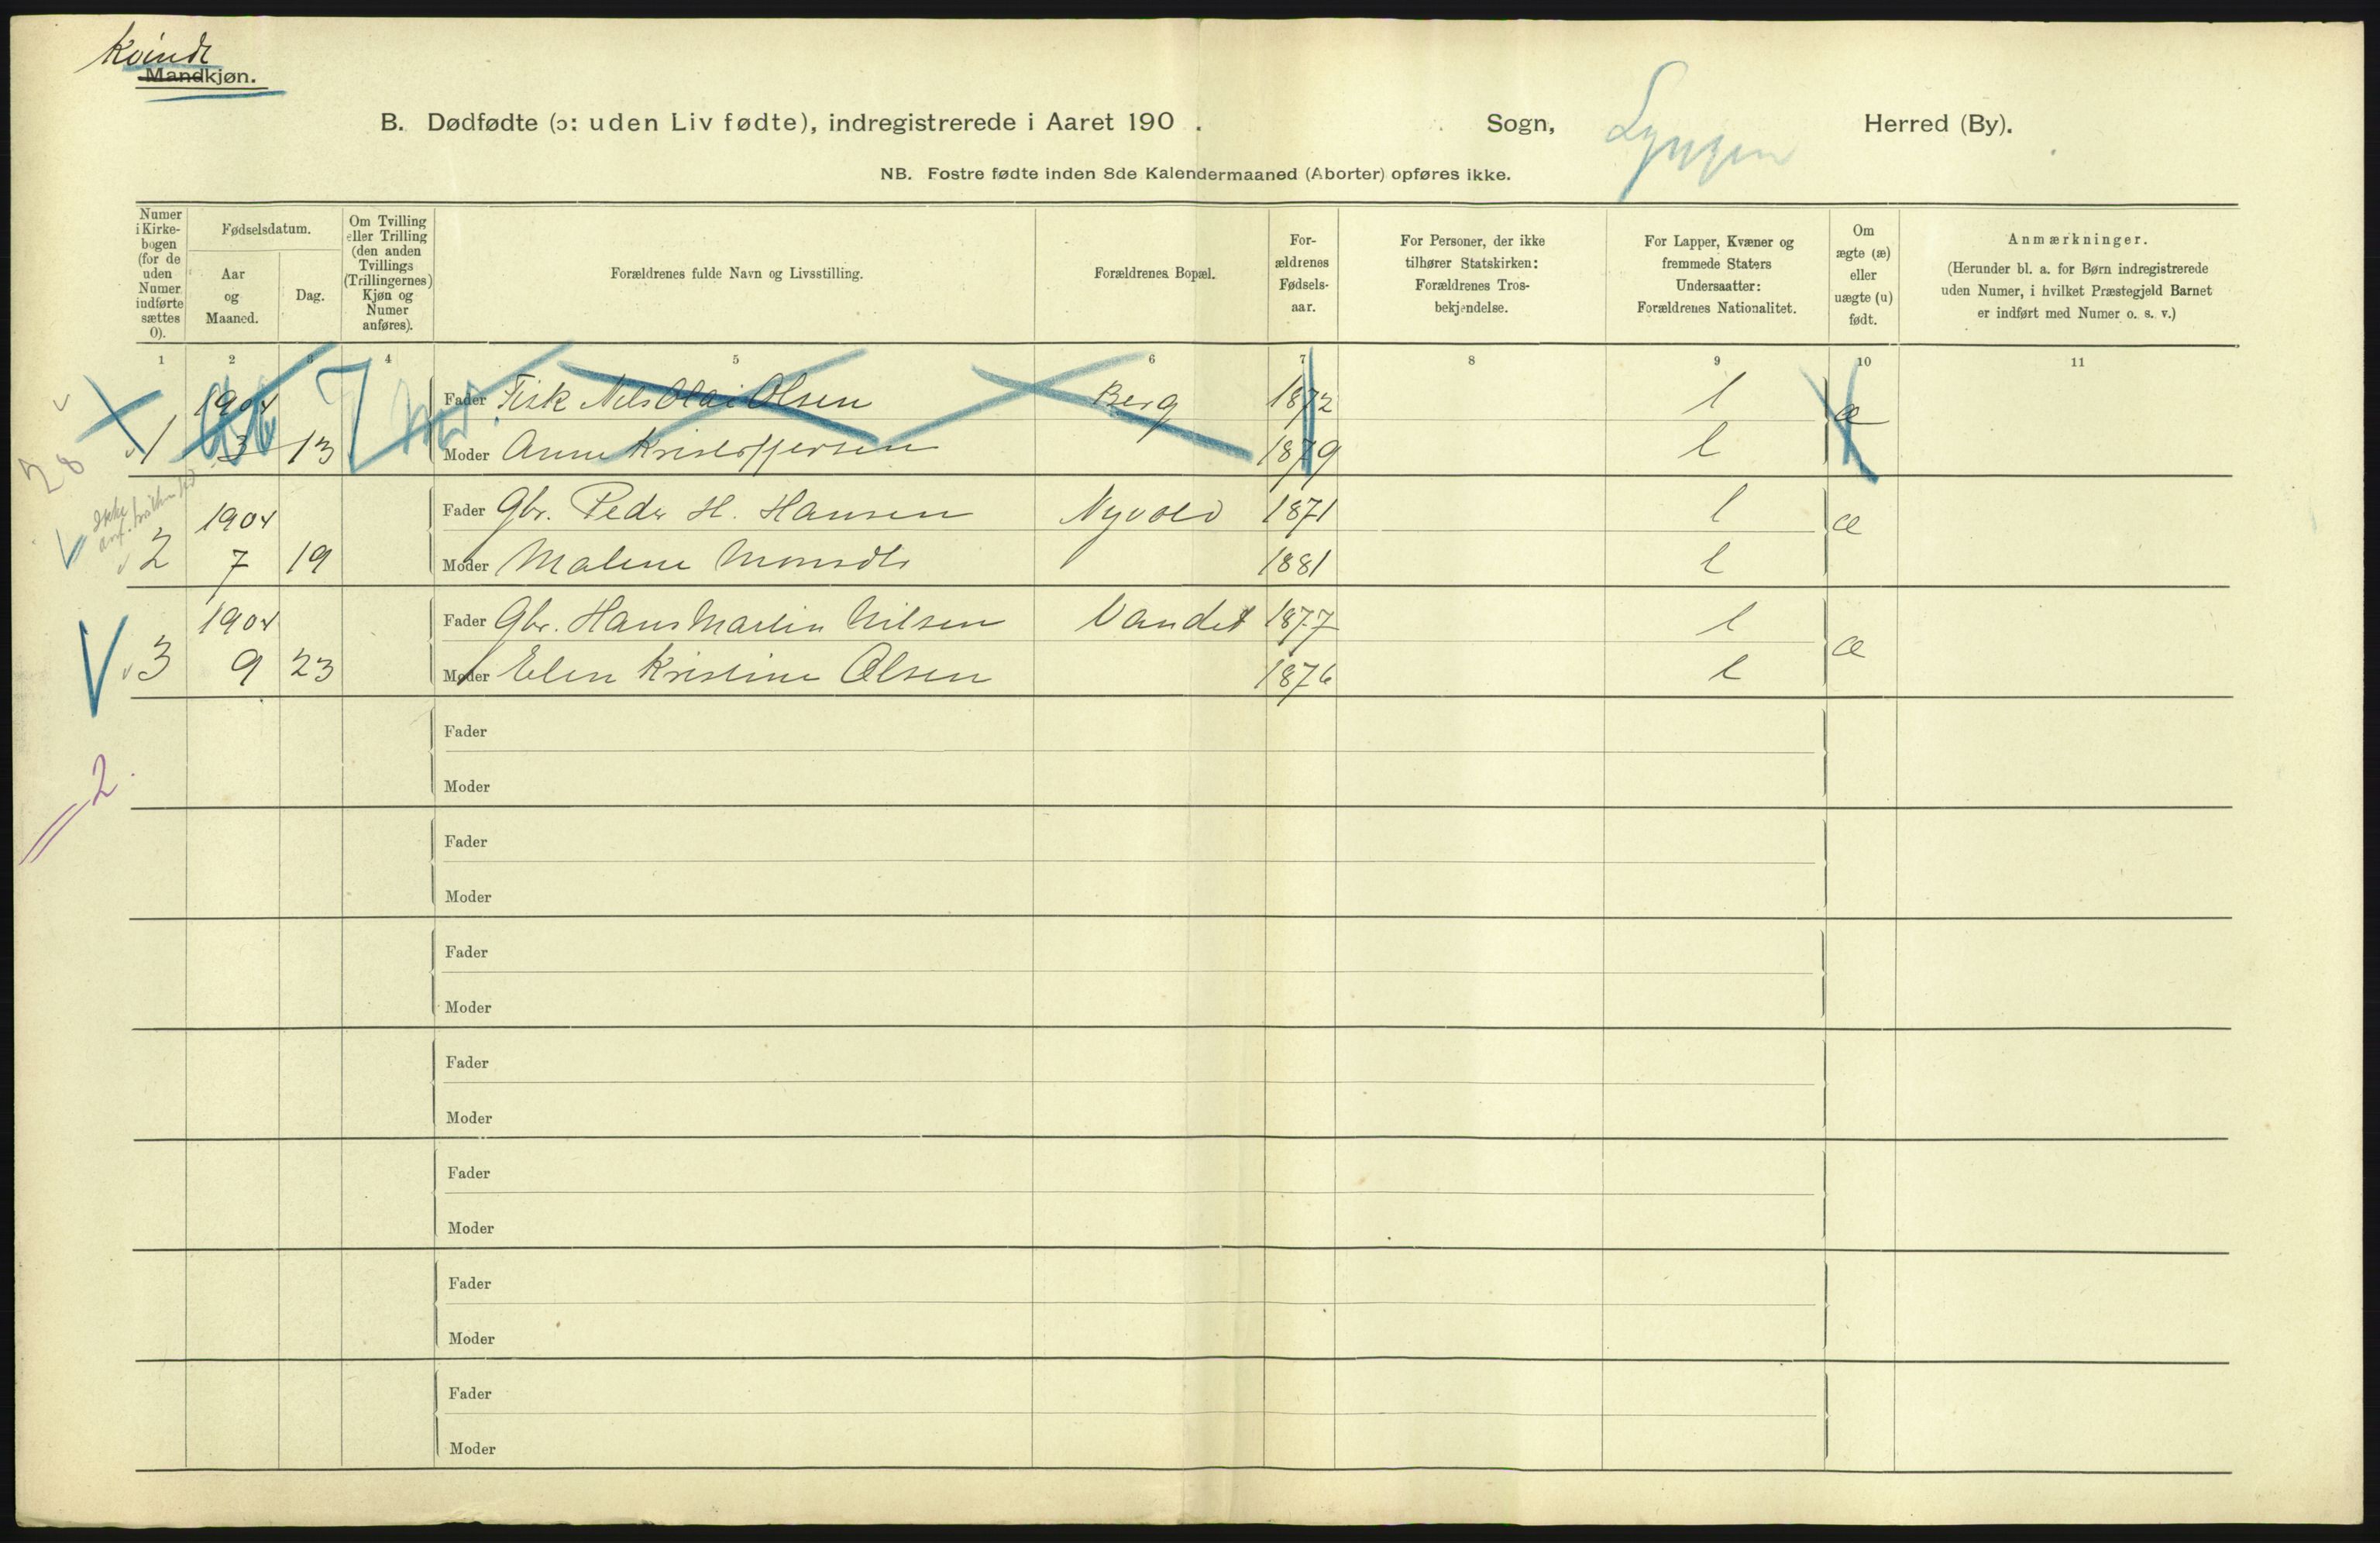 Kvinde
Mandkjøn.
B. Dødfødte (ɔ: uden Liv fødte), indregistrerede i Aaret 190 . Sogn, Lyngen Herred (By).
NB. Fostre fødte inden 8de Kalendermaaned (Aborter) opføres ikke.
Numer i Kirke- bogen (for de uden Numer indførte sættes 0).
Fødselsdatum.
Aar og Maaned.
Dag.
Om Tvilling eller Trilling (den anden Tvillings (Trillingernes) Kjøn og Numer anføres).
Forældrenes fulde Navn og Livsstilling.
Forældrenes Bopæl.
For- ældrenes Fødsels- aar.
For Personer, der ikke tilhører Statskirken: Forældrenes Tros- bekjendelse.
For Lapper, Kvæner og fremmede Staters Undersaatter: Forældrenes Nationalitet.
Om ægte (æ) eller uægte (u) født.
Anmærkninger.
(Herunder bl. a. for Børn indregistrerede uden Numer, i hvilket Præstegjeld Barnet er indført med Numer o. s. v.)
1 2 3 4 5 6 7 8 9 10 11
1904 Fader Fisk Nils Olai Olsen Berg 1872 l æ
1 3 13 Moder Anne Kristoffersen 1879 l
28
Ikke
1904 Fader Gbr. Peder H. Hansen Nyvold 1871 l æ
2 7 19 Moder Malene 1881 l
1904 Fader Gbr. Hans Martin Nilsen Vandet 1877 l æ
3 9 23 Moder Elen Kristine Olsen 1876 l
2
Fader
Moder
Fader
Moder
Fader
Moder
Fader
Moder
Fader
Moder
Fader
Moder
Fader
Moder